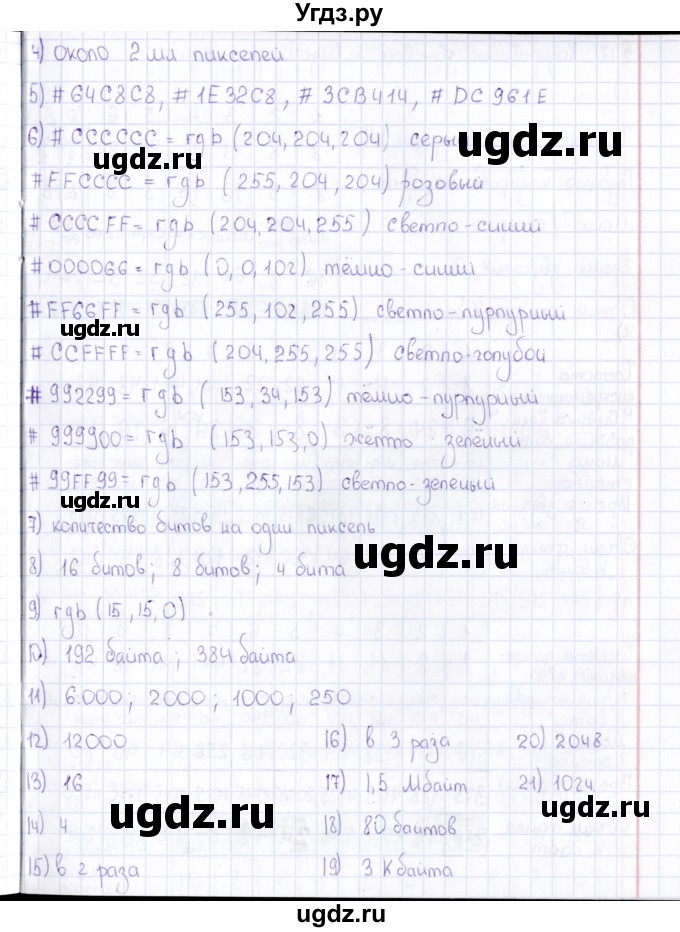 Угдз.ру
4) около 2 мл пикселей
5) #64C8C8, #1E32C8, #3CB414, #DC961E
6) #CCCCCC = rgb (204,204,204) серы
ugdz.ru ugdz.ru
#FFCCCC = rgb (255,204,204) розовый
#CCCCFF = rgb (204,204,255) светло-синий
#000066 = rgb (0,0,102) тёмно-синий
#FF66FF = rgb (255,102,255) светло-пурпурный
ugdz.ru
#CCFFFF = rgb (204,255,255) светло-голубой
#992299 = rgb (153,34,153) тёмно-пурпурный
#999900 = rgb (153,153,0) жётто зелёный
#99FF99 = rgb (153,255,153) светло-зеленый
ugdz.ru
7) количество битов на один пиксель
ugdz.ru
8) 16 битов; 8 битов; 4 бита
9) rgb (15,15,0)
10) 192 байта; 384 байта
11) 6.000; 2000; 1000; 250
12) 12000 16) в 3 раза 20) 2048
13) 16 17) 1,5 Мбайт 21) 1024
ugdz.ru ugdz.ru
14) 4 18) 80 байтов
15) в 2 раза 19) 3 Кбайта
ugdz.ru